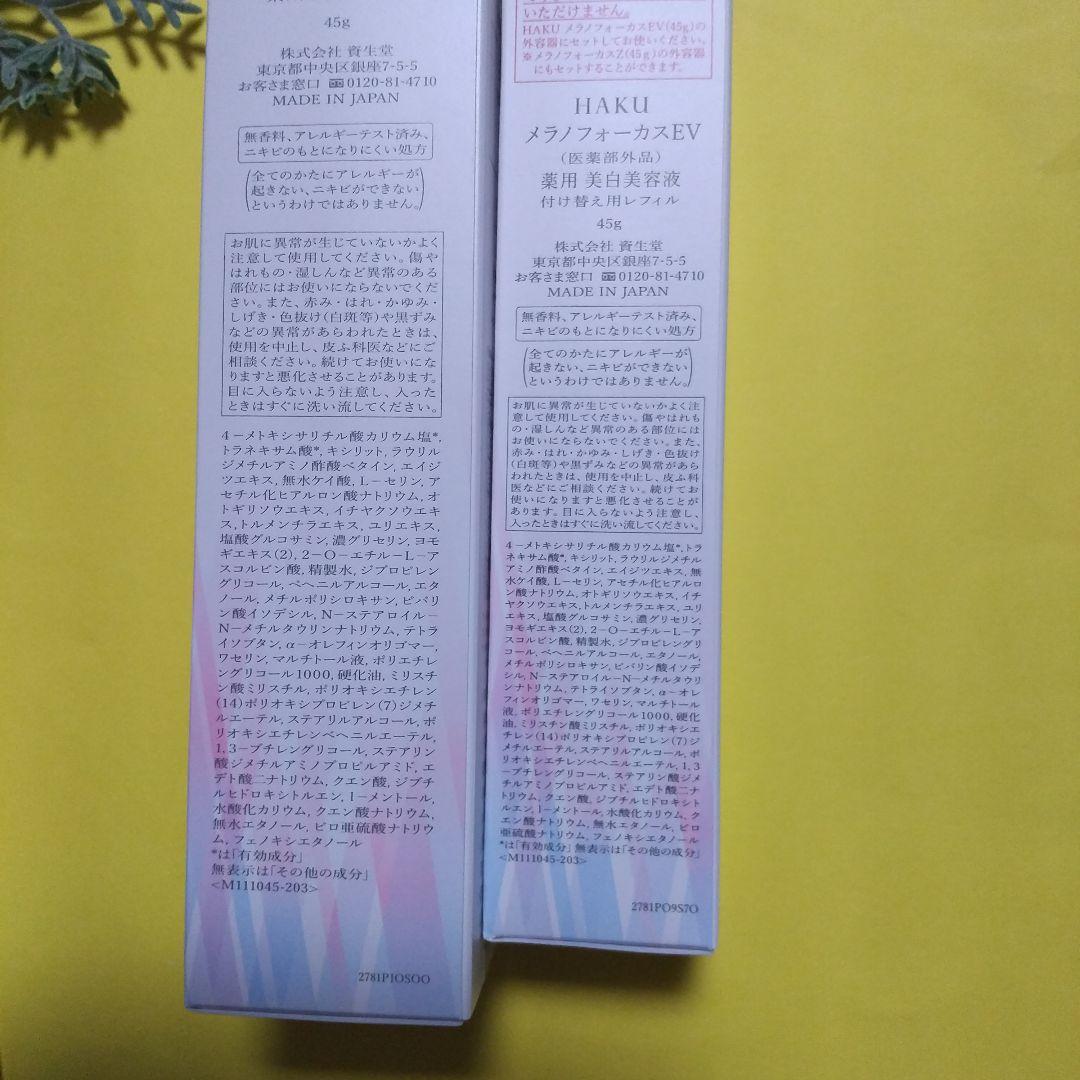 45g
株式会社 資生堂
東京都中央区銀座7-5-5
お客さま窓口 0120-81-4710
MADE IN JAPAN
無香料、アレルギーテスト済み、
ニキビのもとになりにくい処方
(全てのかたにアレルギーが
起きない、ニキビができない
というわけではありません。)
お肌に異常が生じていないかよく
注意して使用してください。傷や
はれもの・湿しんなど異常のある
部位にはお使いにならないでくだ
さい。また、赤み・はれ・かゆみ・
しげき・色抜け(白斑等)や黒ずみ
などの異常があらわれたときは、
使用を中止し、皮ふ科医などにご
相談ください。続けてお使いにな
りますと悪化させることがあります。
目に入らないよう注意し、入った
ときはすぐに洗い流してください。
4-メトキシサリチル酸カリウム塩*,
トラネキサム酸*, キシリット, ラウリル
ジメチルアミノ酢酸ベタイン, エイジ
ツエキス, 無水ケイ酸, L-セリン, ア
セチル化ヒアルロン酸ナトリウム, オ
トギリソウエキス, イチヤクソウエキ
ス, トルメンチラエキス, ユリエキス,
塩酸グルコサミン, 濃グリセリン, ヨモ
ギエキス(2), 2-O-エチル-L-ア
スコルビン酸, 精製水, ジプロピレン
グリコール, ベヘニルアルコール, エタ
ノール, メチルポリシロキサン, ピバリ
ン酸イソデシル, N-ステアロイル-
N-メチルタウリンナトリウム, テトラ
イソブタン, α-オレフィンオリゴマー,
ワセリン, マルチトール液, ポリエチレ
ングリコール1000, 硬化油, ミリスチ
ン酸ミリスチル, ポリオキシエチレン
(14)ポリオキシプロピレン(7)ジメチ
ルエーテル, ステアリルアルコール, ポ
リオキシエチレンベヘニルエーテル,
1, 3-ブチレングリコール, ステアリン
酸ジメチルアミノプロピルアミド, エ
デト酸二ナトリウム, クエン酸, ジブチ
ルヒドロキシトルエン, l-メントール,
水酸化カリウム, クエン酸ナトリウム,
無水エタノール, ピロ亜硫酸ナトリウ
ム, フェノキシエタノール
*は「有効成分」
無表示は「その他の成分」
<M111045-203>
2781P1OSOO
いただけません。
HAKU メラノフォーカスEV(45g)の
外容器にセットしてお使いください。
※メラノフォーカスZ(45g)の外容器
にもセットすることができます。
HAKU
メラノフォーカスEV
(医薬部外品)
薬用 美白美容液
付け替え用レフィル
45g
株式会社 資生堂
東京都中央区銀座7-5-5
お客さま窓口 0120-81-4710
MADE IN JAPAN
無香料、アレルギーテスト済み、
ニキビのもとになりにくい処方
(全てのかたにアレルギーが
起きない、ニキビができない
というわけではありません。)
お肌に異常が生じていないかよく注
意して使用してください。傷やはれも
の・湿しんなど異常のある部位には
お使いにならないでください。また、
赤み・はれ・かゆみ・しげき・色抜け
(白斑等)や黒ずみなどの異常があら
われたときは、使用を中止し、皮ふ科
医などにご相談ください。続けてお
使いになりますと悪化させることが
あります。目に入らないよう注意し、
入ったときはすぐに洗い流してください。
4-メトキシサリチル酸カリウム塩*, トラ
ネキサム酸*, キシリット, ラウリルジメチル
アミノ酢酸ベタイン, エイジツエキス, 無
水ケイ酸, L-セリン, アセチル化ヒアルロ
ン酸ナトリウム, オトギリソウエキス, イチ
ヤクソウエキス, トルメンチラエキス, ユリ
エキス, 塩酸グルコサミン, 濃グリセリン,
ヨモギエキス(2), 2-O-エチル-L-ア
スコルビン酸, 精製水, ジプロピレングリ
コール, ベヘニルアルコール, エタノール,
メチルポリシロキサン, ピバリン酸イソデ
シル, N-ステアロイル-N-メチルタウリ
ンナトリウム, テトライソブタン, α-オレ
フィンオリゴマー, ワセリン, マルチトール
液, ポリエチレングリコール1000, 硬化
油, ミリスチン酸ミリスチル, ポリオキシエ
チレン(14)ポリオキシプロピレン(7)ジ
メチルエーテル, ステアリルアルコール, ポ
リオキシエチレンベヘニルエーテル, 1, 3
-ブチレングリコール, ステアリン酸ジメ
チルアミノプロピルアミド, エデト酸二ナ
トリウム, クエン酸, ジブチルヒドロキシト
ルエン, l-メントール, 水酸化カリウム, ク
エン酸ナトリウム, 無水エタノール, ピロ
亜硫酸ナトリウム, フェノキシエタノール
*は「有効成分」無表示は「その他の成分」
<M111045-203>
2781PO9S7O